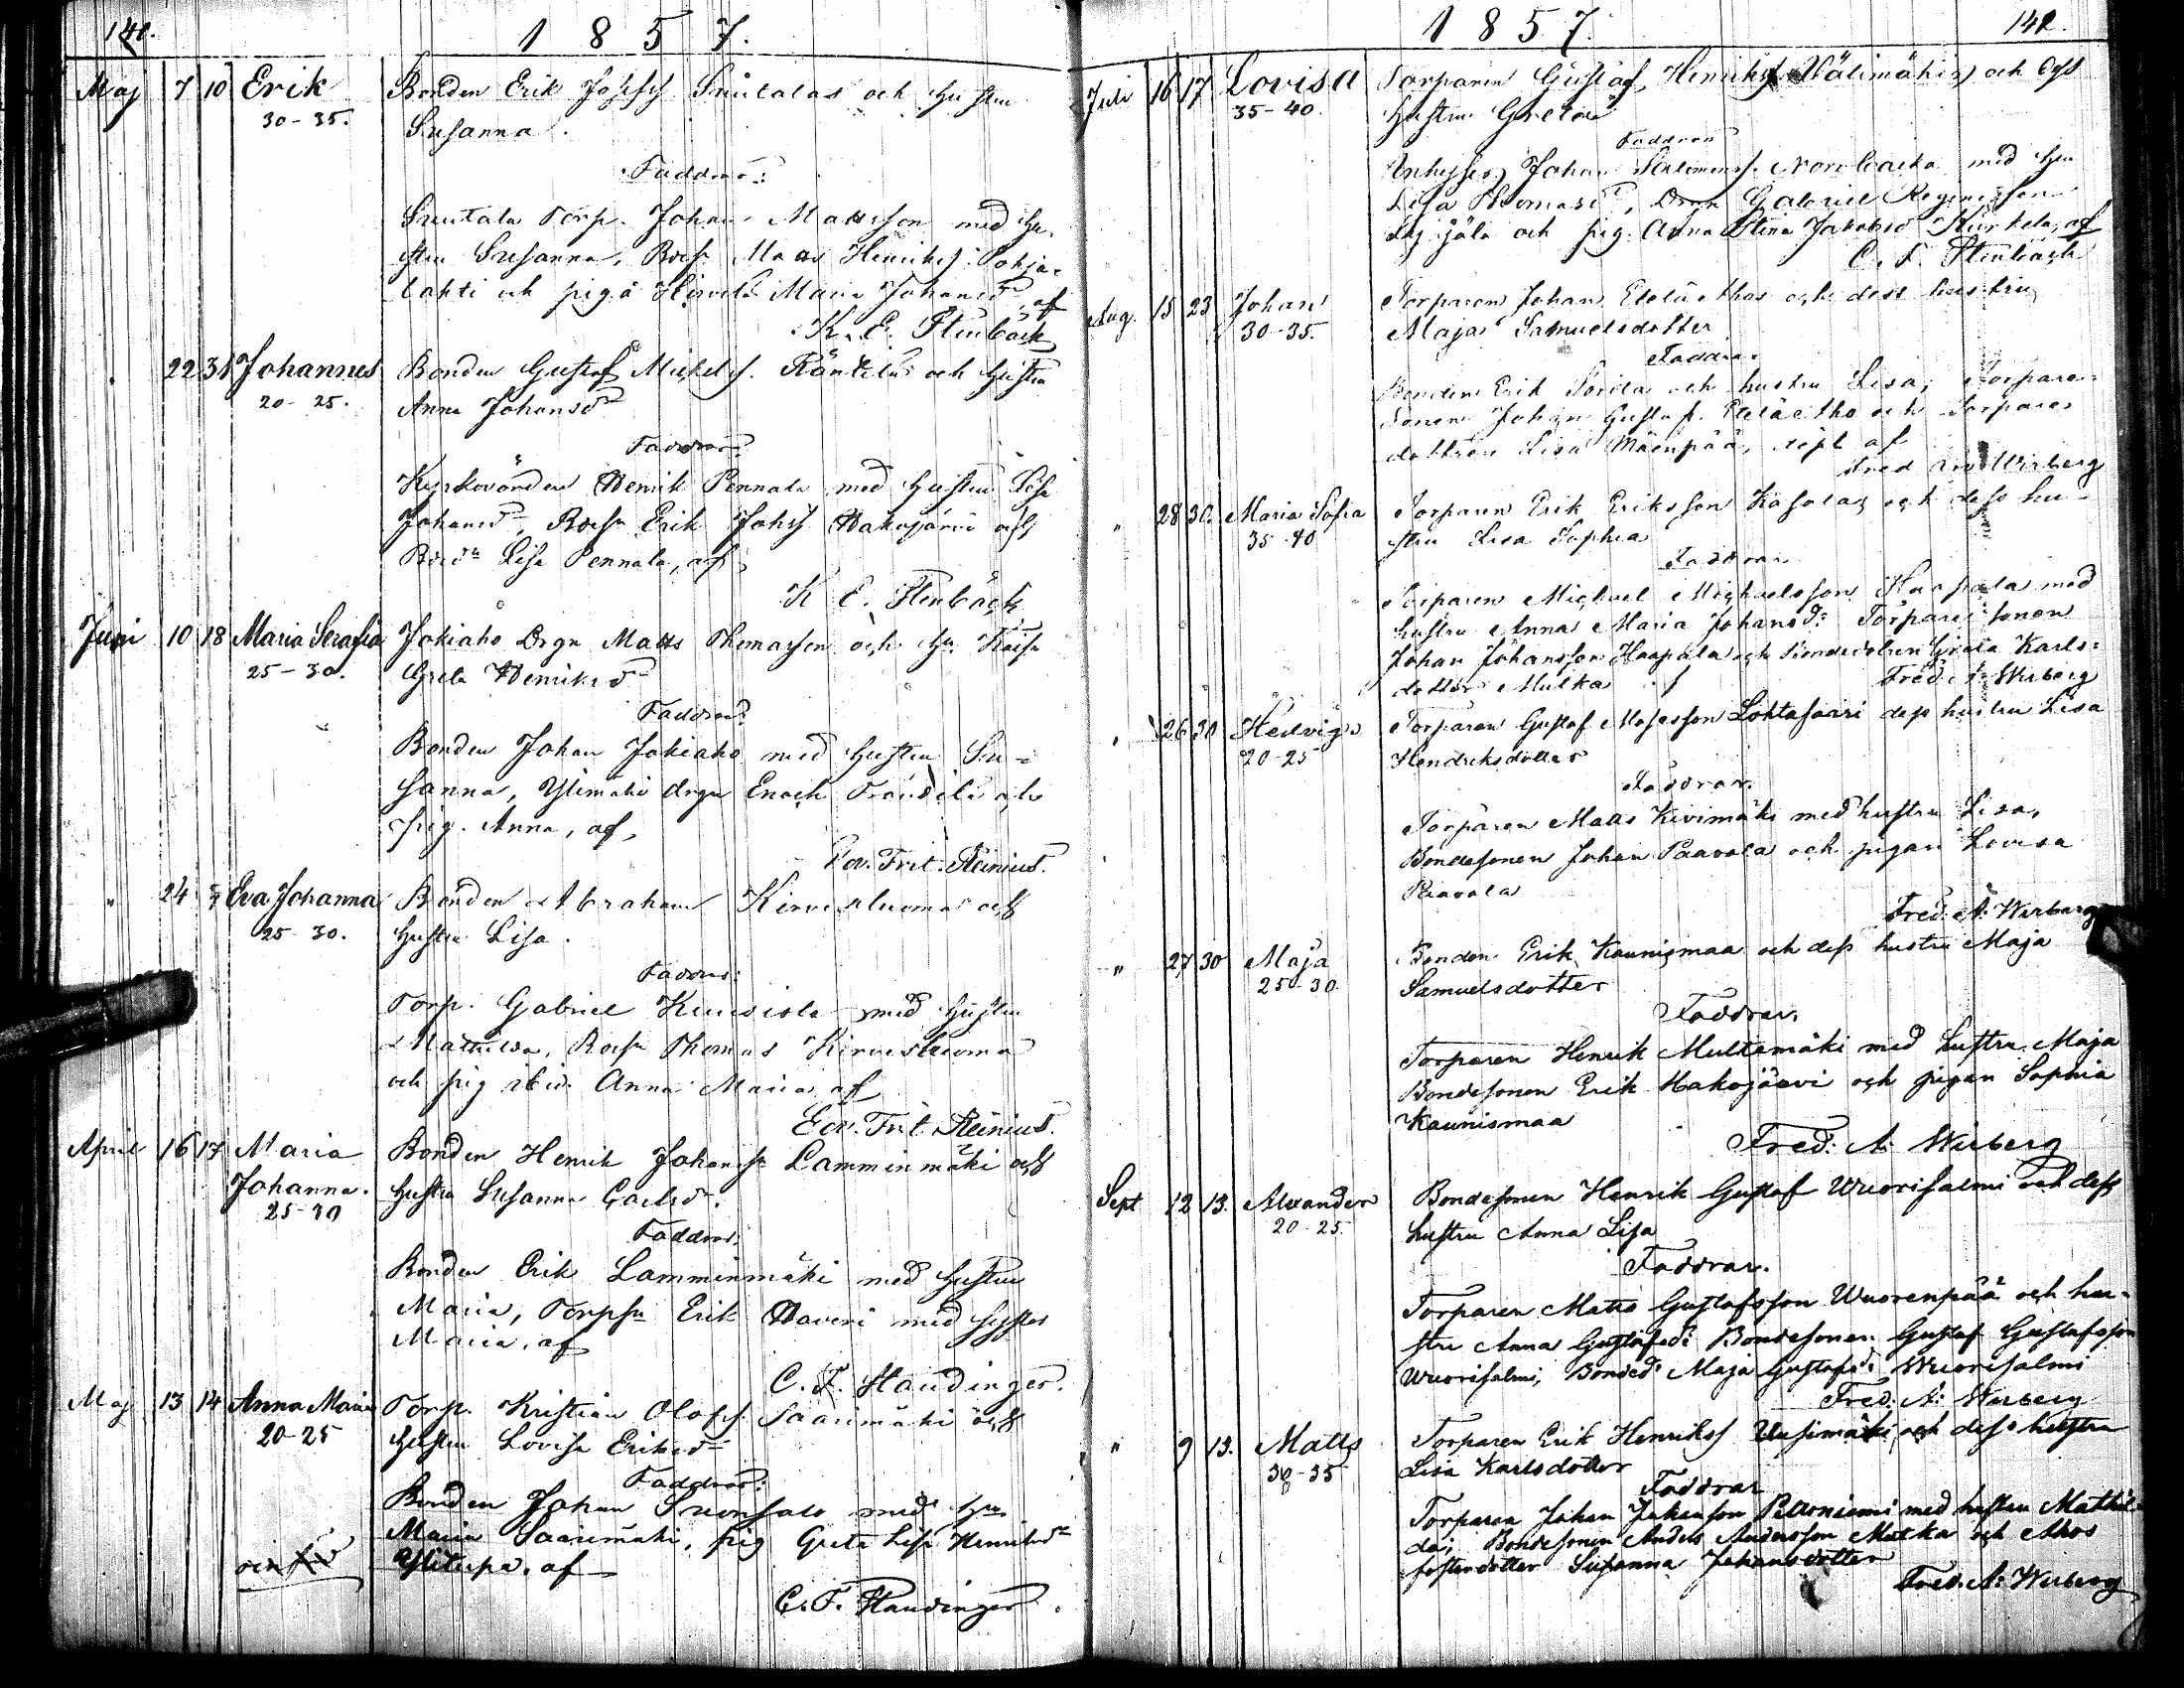 140.
1857.
Maj 7 10 Erik Bonden Erik Josefss. Snutalas och Hustru
30-35. Susanna.
Faddrar:
Torp. Johan Mattsson med Hu-
stru Susanna, Matts Henrikss. Pohja-
lahti och pigä Maria Johansdr af
K. E. Stenbäck
22 31 Johannes Bonden Gustaf Mickelss. Räntilä och Hustru
20-25. Anna Johansdr
Faddrar:
Kyrkovärden Henrik Pennala med Hustru Lisa
Johansdr, Erik Johss Hakojärvi och
Lisa Pennala, af
K E. Stenbäck
Juni 10 18 Maria Serafia Jokiaho Drgn Matts Thomasson och Hu Kaisa
25-30. Greta Henriksdr
Faddrar:
Bonden Johan Jokiaho med Hustru Su-
sanna, Ylimäki drgn Enoch och
pig. Anna, af,
Frit. Reinius.
" 24 Eva Johanna Bonden Abraham Kirvesluoma och
25-30. Hustru Lisa.
Faddrar:
Torp. Gabriel med Hustru
Mathilda, Thomas Kirvesluoma
och pig ibid. Anna Maria af
Edv. Frit. Reinius.
April 16 17 Maria Bonden Henrik Johanss. Lamminmäki och
Johanna. Hustru Susanna
25-30
Faddrar:
Bonden Erik Lamminmäki med Hustru
Maria, Erik Haveri med Hustru
Maria, af
C. F. Standinger.
Maj 13 14 Anna Maria Torp. Kristian Olofss. Saarimäki och
20-25 Hustru Lovisa Eriksdr
Faddrar:
Bonden Johan Suonsalo med Hu
Maria Saarimäki, pig Greta Lisa Henriksdr
Ylitupa. af
C. F. Standinger.
1857.
141.
Juli 16 17 Lovisa Torparen Gustaf Henrikss. Välimäki och dess
35-40. Hustru Greta
Faddrar
Inhyses Johan Salomonss. Norrbacka med Hu
Lisa Thomasdr, Drgn Gabriel
och pig. Anna Stina Jakobsdr af
C. F. Stenbäck
Aug. 15 23 Johan Torparen Johan Eteläaho och dess hustru
30-35. Maja Samuelsdotter
Faddrar.
Bonden Erik Sorila och hustru Lisa, Torpare-
sonen Johan Gustaf. Eteläaho och Torpare
dottren Lisa Mäenpää, döpt af
Fred Wirberg
" 28 30. Maria Sofia Torparen Erik Eriksson Kasola och dess hu-
35-40 stru Lisa Sophia
Faddrar
Torparen Michael Michaelsson Haapala med
hustru Anna Maria Johansd: Torpare sonen
Johan Johansson Haapala och Bondedotren Greta Karls-
dotter Mulka Fred. A. Wirberg
" 26 30 Hedvig Torparen Gustaf Mosesson Lohtasaari dess hustru Lisa
20-25 Hendriksdotter
Faddrar.
Torparen Matts Kivimäki med hustru Lisa,
Bondesonen Johan Paavola och pigan Lovisa
Paavola
Fred. A. Wirberg
" 27 30 Maja Bonden Erik Kaunismaa och dess hustru Maja
25-30. Samuelsdotter
Faddrar.
Torparen Henrik Multamäki med hustru Maja
Bondesonen Erik Hakojärvi och pigan Sophia
Kaunismaa
Fred. A. Wirberg
Sept 12 13. Alexander Bondesonen Henrik Gustaf Wuorisalmi och dess
20-25. hustru Anna Lisa
Faddrar.
Torparen Matts Gustafsson Wuorenpää och hu-
stru Anna Gustafsd: Bondesonen Gustaf Gustafsson
Wuorisalmi, Bonded: Maja Gustafsd: Wuorisalmi
Fred. A. Wirberg
" 9 13. Matts Torparen Erik Henrikss Uusimäki och dess hustru
30-35 Lisa Karlsdotter
Faddrar
Torparen Johan Johansson Petoniemi med hustru Mathil-
da; Bondesonen Anders Andersson Matka och Ahos
fosterdotter Susanna Johansdotter
Fred. A. Wirberg